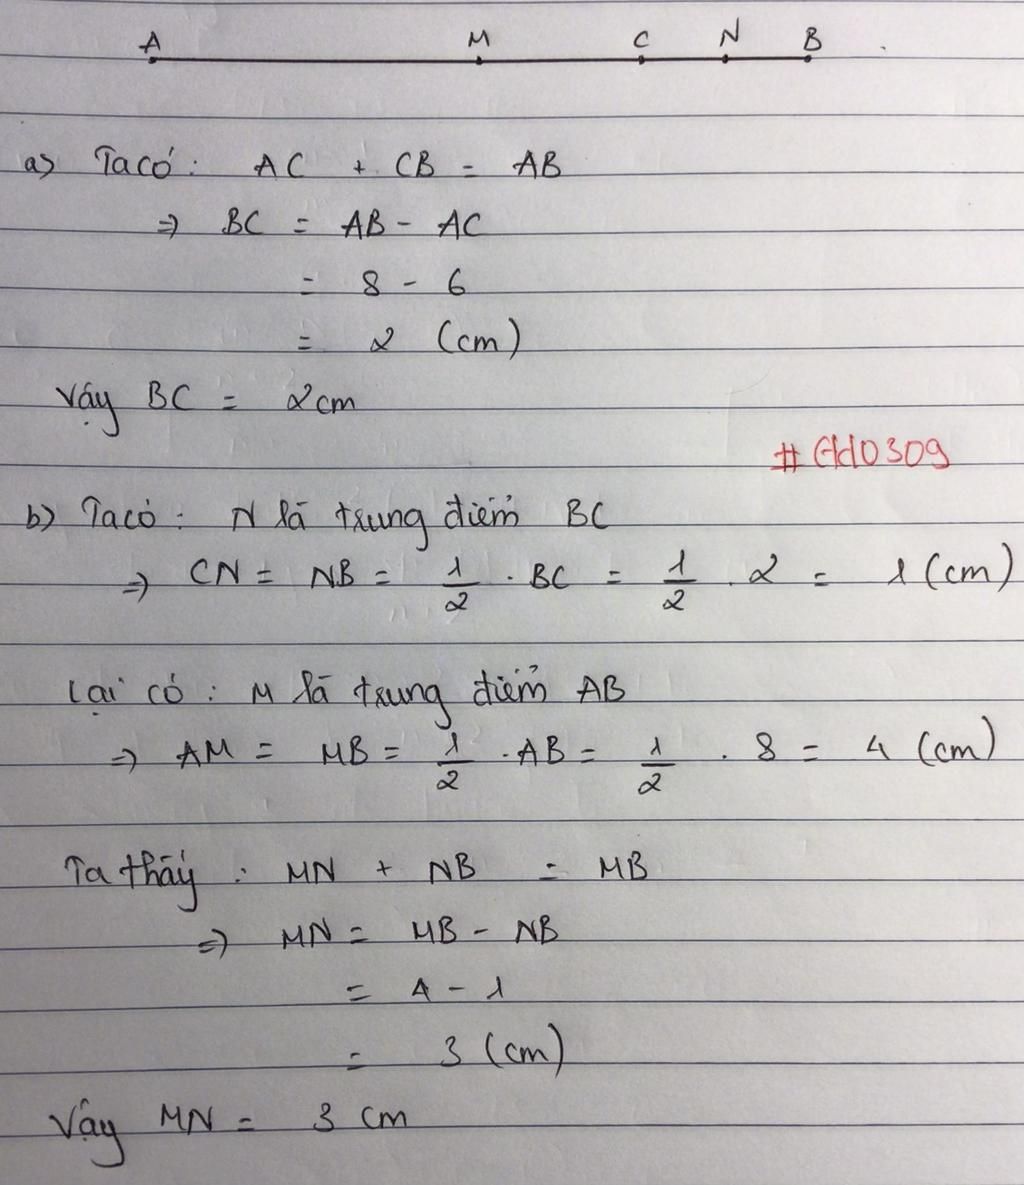 A M C N B
a) Ta có: AC + CB = AB
=> BC = AB - AC
= 8 - 6
= 2 (cm)
Vậy BC = 2cm
#GH0309
b) Ta có: N là trung điểm BC
=> CN = NB = 1/2 . BC = 1/2 . 2 = 1 (cm)
Lại có: M là trung điểm AB
=> AM = MB = 1/2 . AB = 1/2 . 8 = 4 (cm)
Ta thấy: MN + NB = MB
=> MN = MB - NB
= 4 - 1
= 3 (cm)
Vậy MN = 3 cm